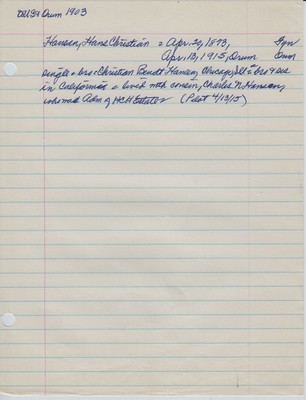 Drum 1903
Hansen, Hans Christian = Apr. 30, 1893,
Apr. 13, 1915, Drum
single = bro = Christian Bendt Hansen, Chicago, Ill = bro & sis
in California = lived with cousin, Charles N. Hansen,
who was Adm of HCH Estate (Pilot 4/13/15)